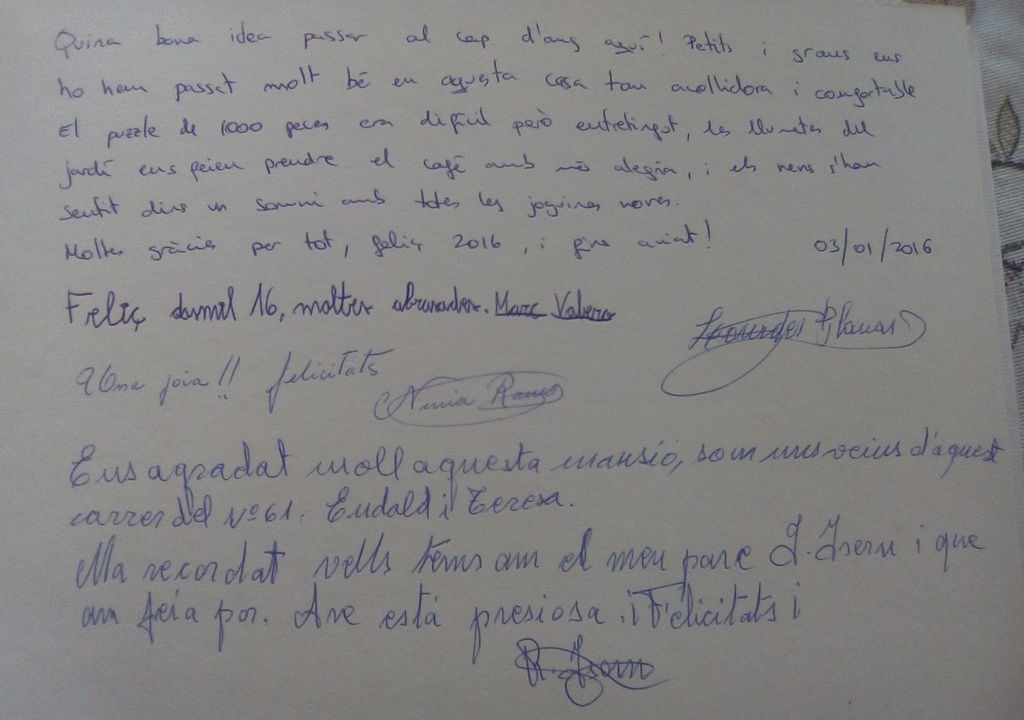 Quina bona idea passar el cap d'any aquí! Petits i grans ens
ho hem passat molt bé en aquesta casa tan acollidora i confortable
El puzzle de 1000 peces era difícil però entretingut, les llumetes del
jardí ens feien prendre el cafè amb més alegria, i els nens s'han
sentit dins un somni amb totes les joguines noves.
Moltes gràcies per tot, feliç 2016, i fins aviat! 03/01/2016
Feliç dosmil 16, moltes abraçades. Marc Valero
Lourdes Planas
Una joia!! felicitats
Núria Ramos
Ens agradat moll aquesta mansió, som uns vecius d'aquest
carrer del Nº 61. Eudald i Teresa.
M'a recordat vells tems am el meu pare J. Isern i que
am feia por. Are está presiosa. ¡Felicitats¡
R. Isern